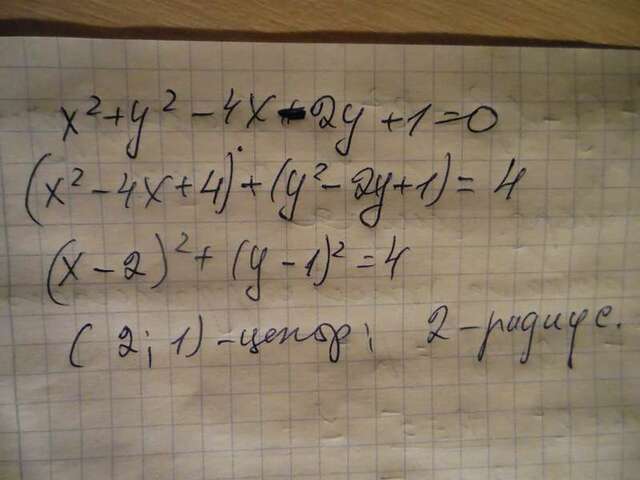 x² + y² - 4x - 2y + 1 = 0
(x² - 4x + 4) + (y² - 2y + 1) = 4
(x - 2)² + (y - 1)² = 4
(2; 1) - центр; 2 - радиус.